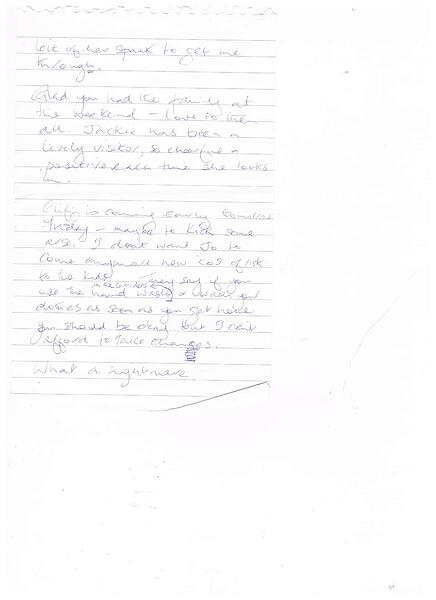 bit of her spunk to get me
through.
Glad you had the family at
the weekend - love to them
all. Jackie has been a
lovely visitor, so cheerful &
positive each time she looks
in.
Cliff is coming early tomorrow
Friday - maybe to kick some
arse. I don't want Jo to
come anymore now cos of risk
to the kids. They say if you
use the hand wash in the corridors & wash your
clothes as soon as you get home
you should be okay but I can't
afford to take chances.
What a nightmare.